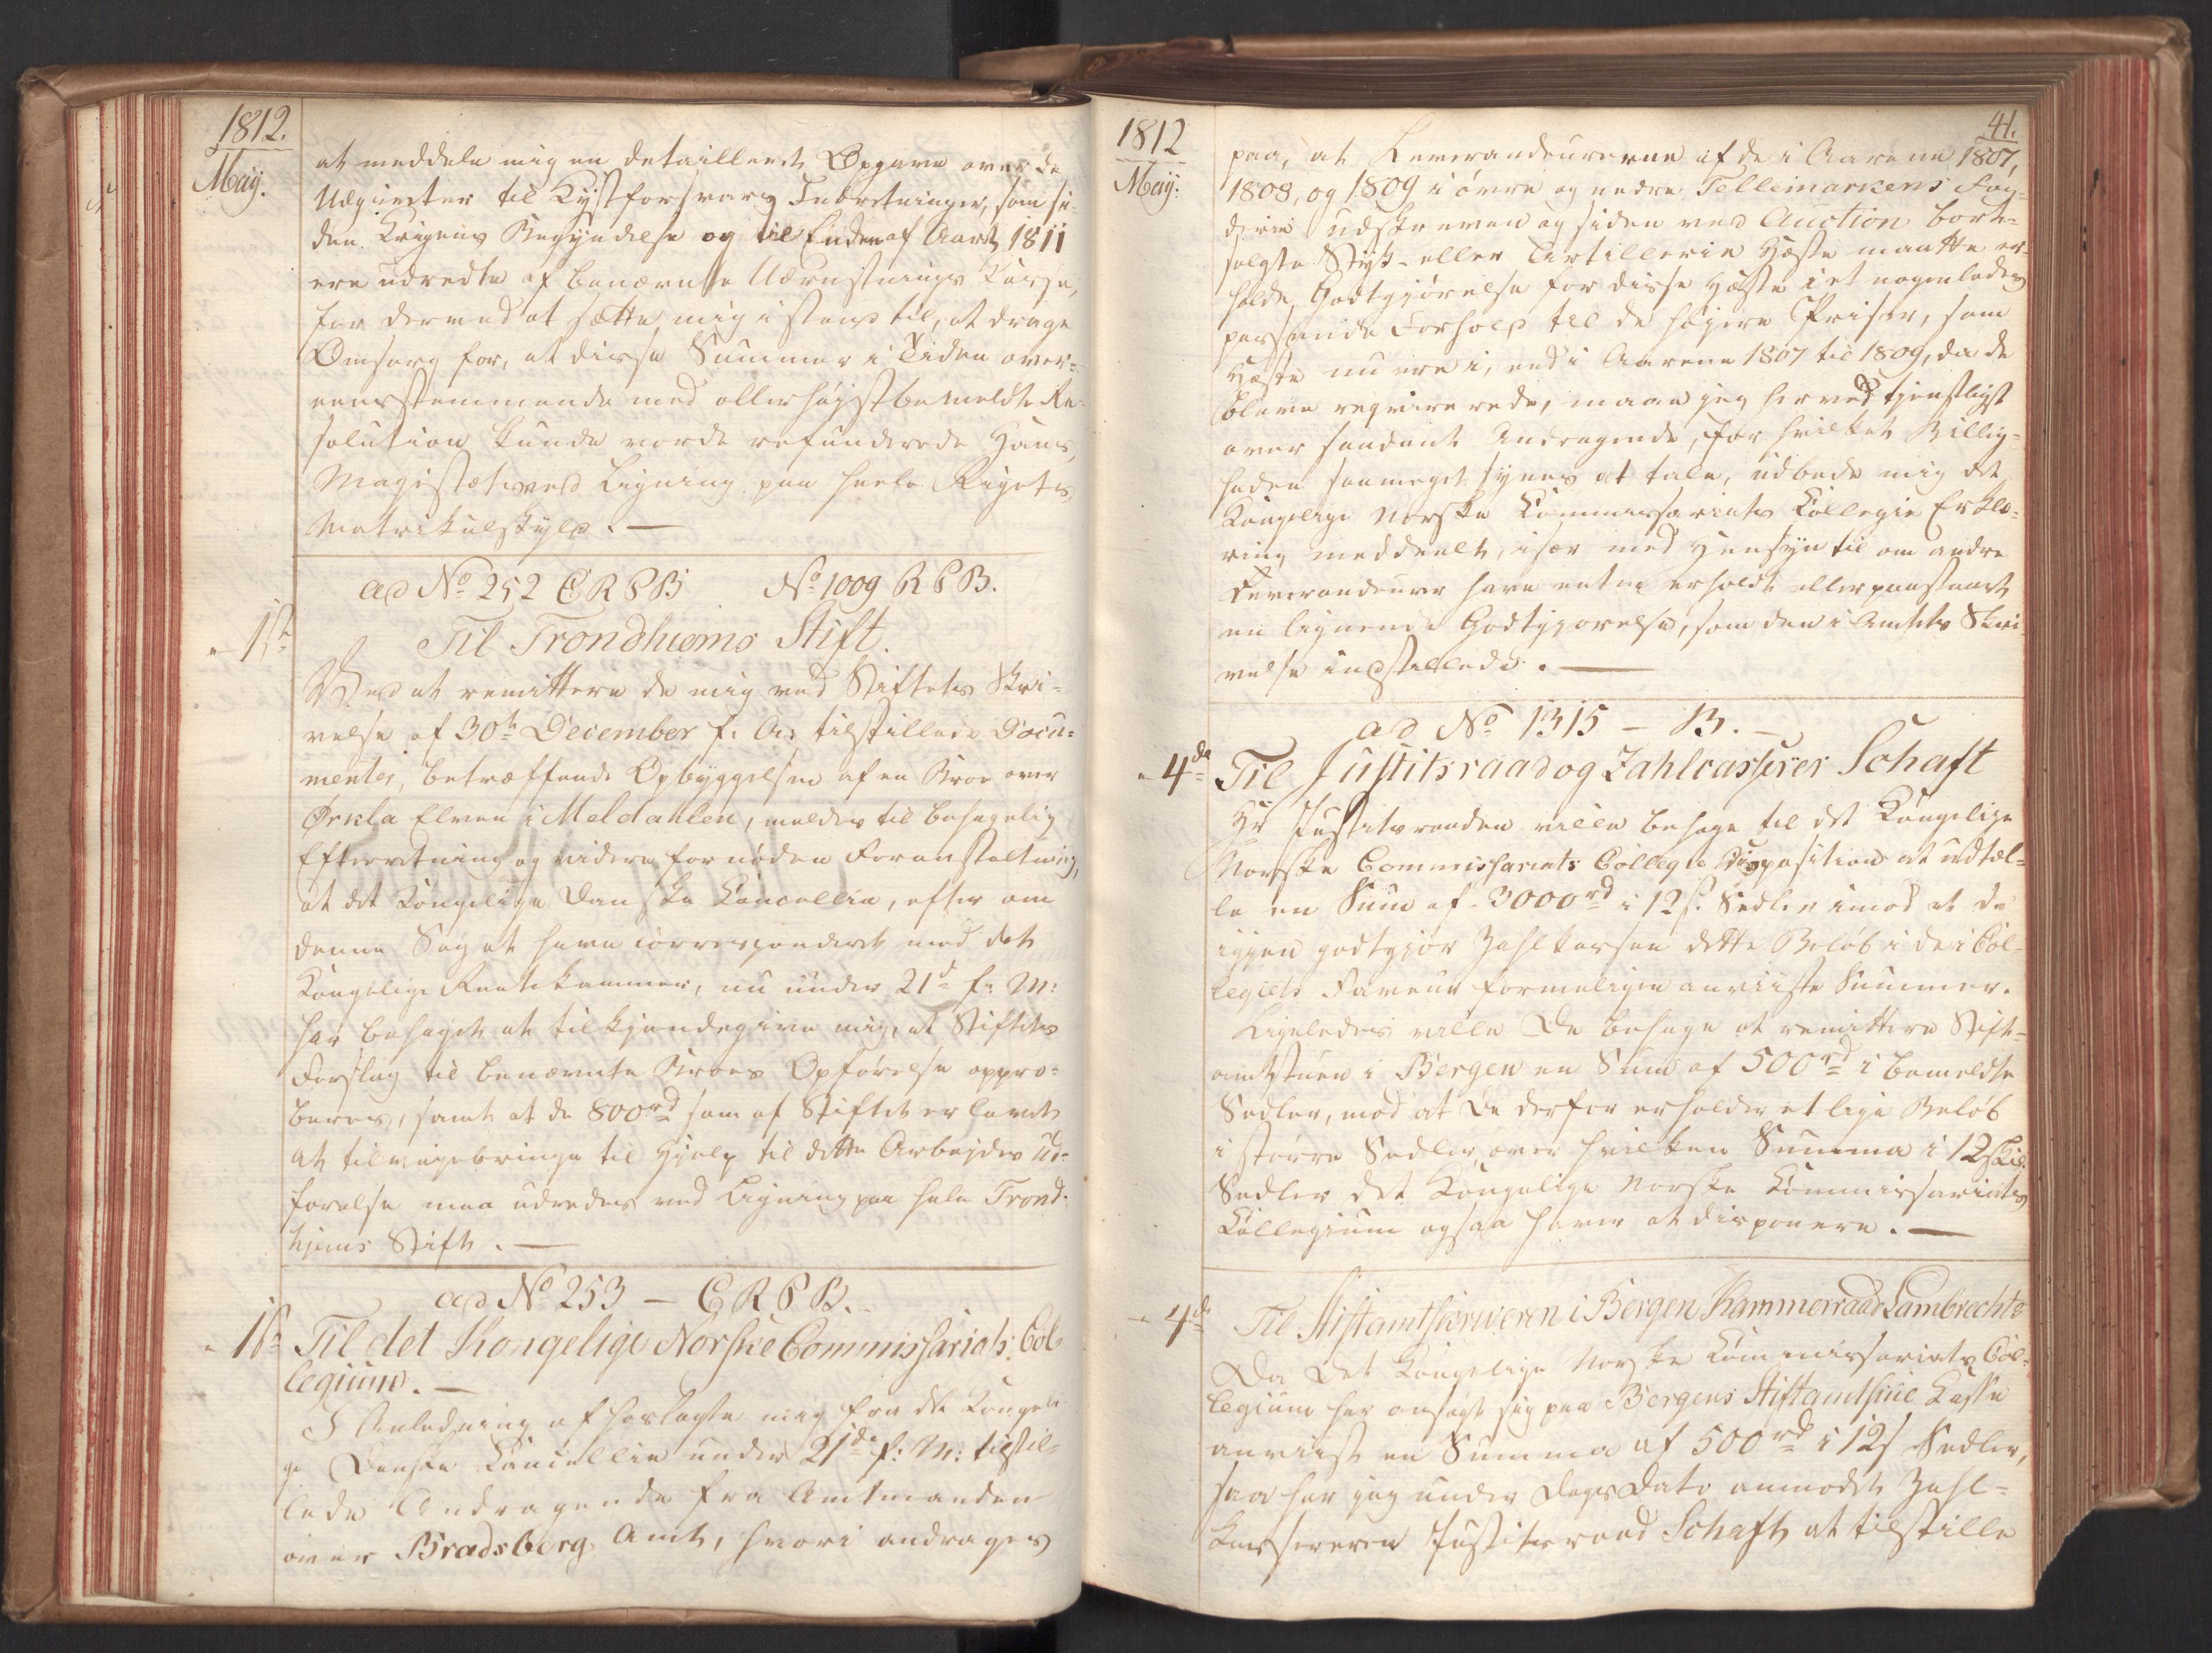 1812.
May.
at meddele mig en detailleret Opgave over de
Udgivter til Kystforsvars Indretninger, som si-
den Krigens Begyndelse og til Enden af Aaret 1811
ere udredte af benævnte Udrustnings Casse,
for derved at sætte mig i stand til, at drage
Omsorg for, at disse Summer i Tiden over-
eensstemmende med allerhøjstbemeldte Re-
solution kunde vorde refunderede Hans
Magistæt ved Ligning paa heele Rigets
Matrikulskyld. —
ad No 252 C R P B No 1009 R P B.
- 1ste
Til Trondhiems Stift.
Ved at remittere de mig ved Stiftets Skri-
velse af 30te December f. A. tilstillede Docu-
menter, betræffende Opbyggelsen af en Broe over
Orkla Elven i Meldahlen, meldes til behagelig
Efterretning og videre fornøden Foranstaltning,
at det Kongelige Danske Cancellie, efter om
denne Sag at have correspondert med det
Kongelige Rentekammer, nu under 21de f: M:
har behaget at tilkjendegive mig, at Stiftets
Forslag til benævnte Broes Opførelse appro-
beres, samt at de 800rd som af Stiftet er lovet
at tilvejebringe til Hjelp til dette Arbejdes Ud-
førelse maa udredes ved Ligning paa hele Trond-
hjems Stift. —
ad No 253 — C R P B.
- 1ste
Til det Kongelige Norske Commissariats Col-
legium. —
I Anledning af hoslagte mig fra det Kongeli-
ge Danske Cancellie under 21de f: M: tilstil-
lede Andragende fra Amtmanden
over Bradsberg Amt, hvori andrages
1812
May:
41.
paa, at Leverandeurerne af de i Aarene 1807,
1808, og 1809 i øvre og nedre Tellemarkens Fog-
derie udskrevne og siden ved Auction bort-
solgte Styk- eller Artillerie Heste maatte er-
holde Godtgjørelse for disse Heste i et nogenledes
passende Forhold til de højere Priser, som
Heste nu ere i, end i Aarene 1807 til 1809, da de
bleve reqvirerede, maae jeg herved tjenstligst
over saadant Andragende, for hvilket Billig-
heden saameget synes at tale, udbede mig det
Kongelige Norske Commissariats Collegie Erklæ-
ring meddeelt, især med Hensyn til om andre
Leverandeurer have enten erholdt eller paastaaet
en lignende Godtgjørelse, som den i Amtets Skri-
velse indstillede. —
ad No 1315 — B. —
- 4de
Til Justitsraad og Zahlcasserer Schaft
Hr Justitsraaden ville behage til det Kongelige
Norske Commissariats Collegie Disposition at udtæl-
le en Sum af 3000rd i 12 s. Sedler imod at de
igjen godtgjør Zahlkassen dette Beløb i de i Col-
legiets Faveur formeligen anviiste Summer.
Ligeledes ville De behage at remittere Stift-
amtstuen i Bergen en Sum af 500rd i bemeldte
Sedler, mod at De derfor erholder et lige Beløb
i større Sedler, over hvilken Summa i 12 skil.
Sedler det Kongelige Norske Commissariats
Collegium ogsaa haver at disponere. —
- 4de
Til Stiftamtskriveren i Bergen Kammerraad Lambrechts
Da det Kongelige Norske Commissariats Col-
legium har ansøgt sig paa Bergens Stiftamtstue Casse
anviist en Summa af 500rd i 12 s Sedler,
saa har jeg under Dags Dato anmodet Zahl-
kassereren Justitsraad Schaft at tilstille